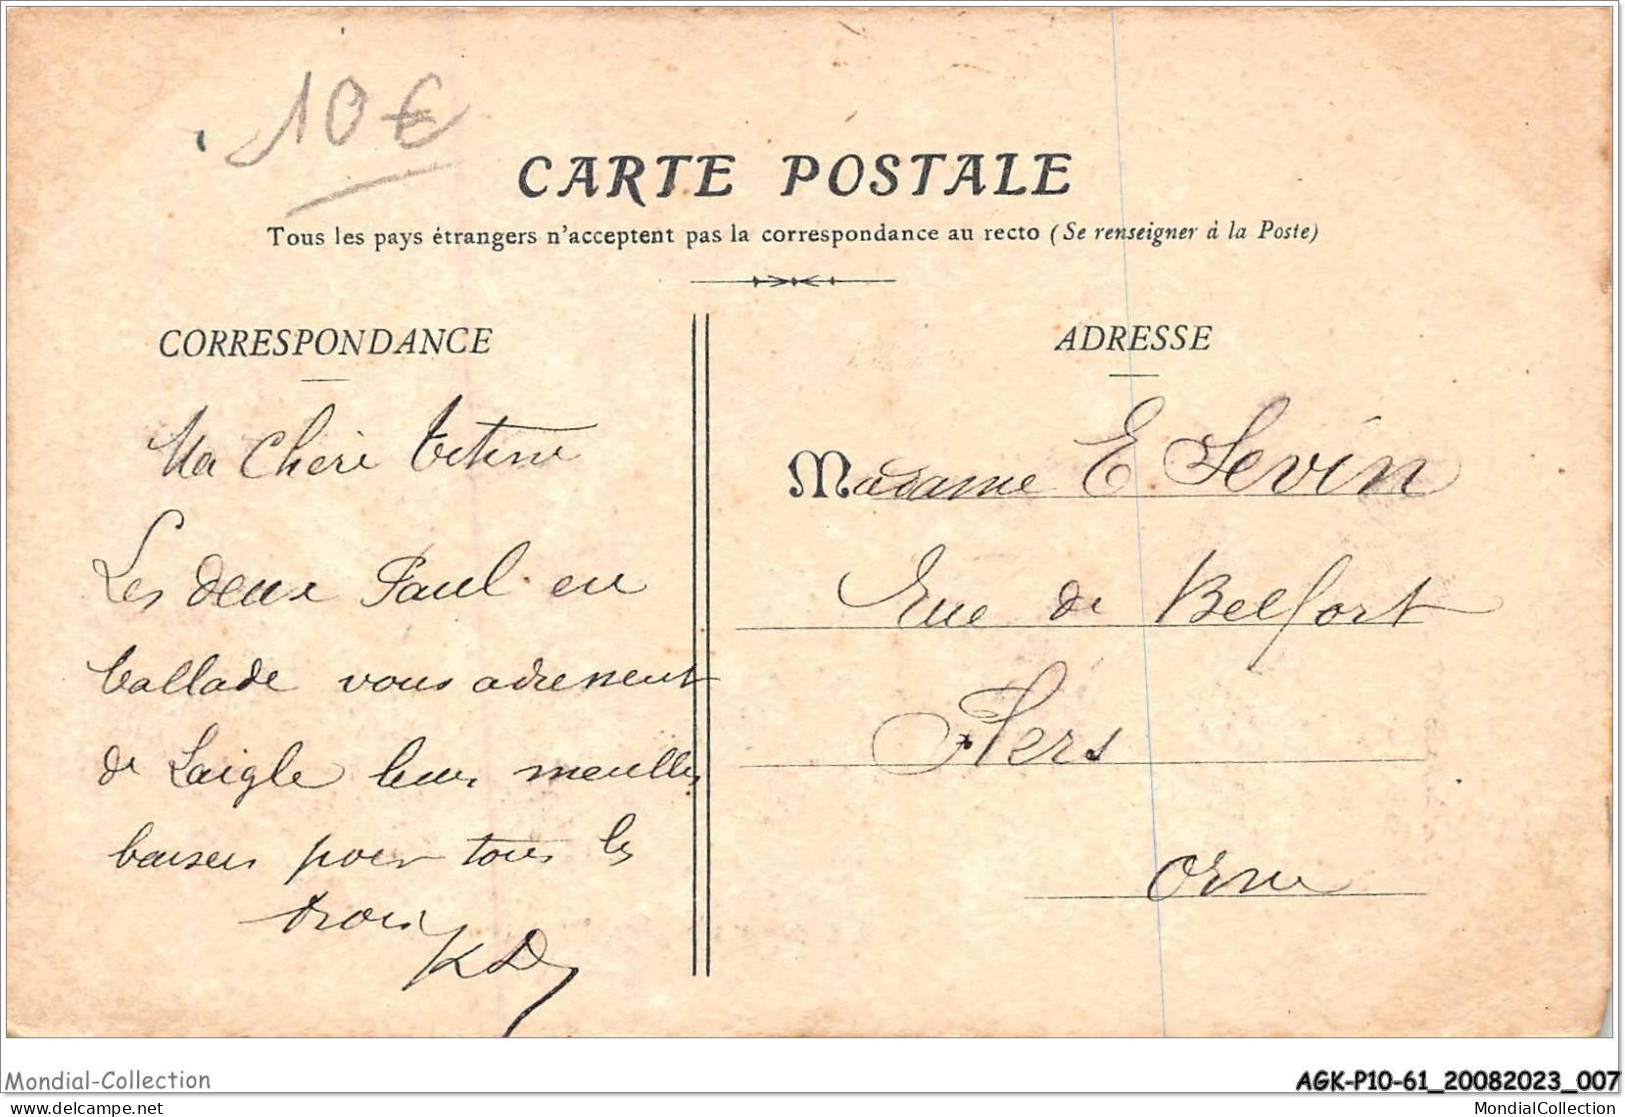 10 €
CARTE POSTALE
Tous les pays étrangers n'acceptent pas la correspondance au recto (Se renseigner à la Poste)
CORRESPONDANCE
ADRESSE
Ma Chère Titine
Les deux Paul en
ballade vous adressent
de Laigle leurs meilleurs
baisers pour tous les
trois
Madame E. Sevin
Rue de Belfort
Flers
Orne
Mondial-Collection
AGK-P10-61_20082023_007
delcampe.net
MondialCollection